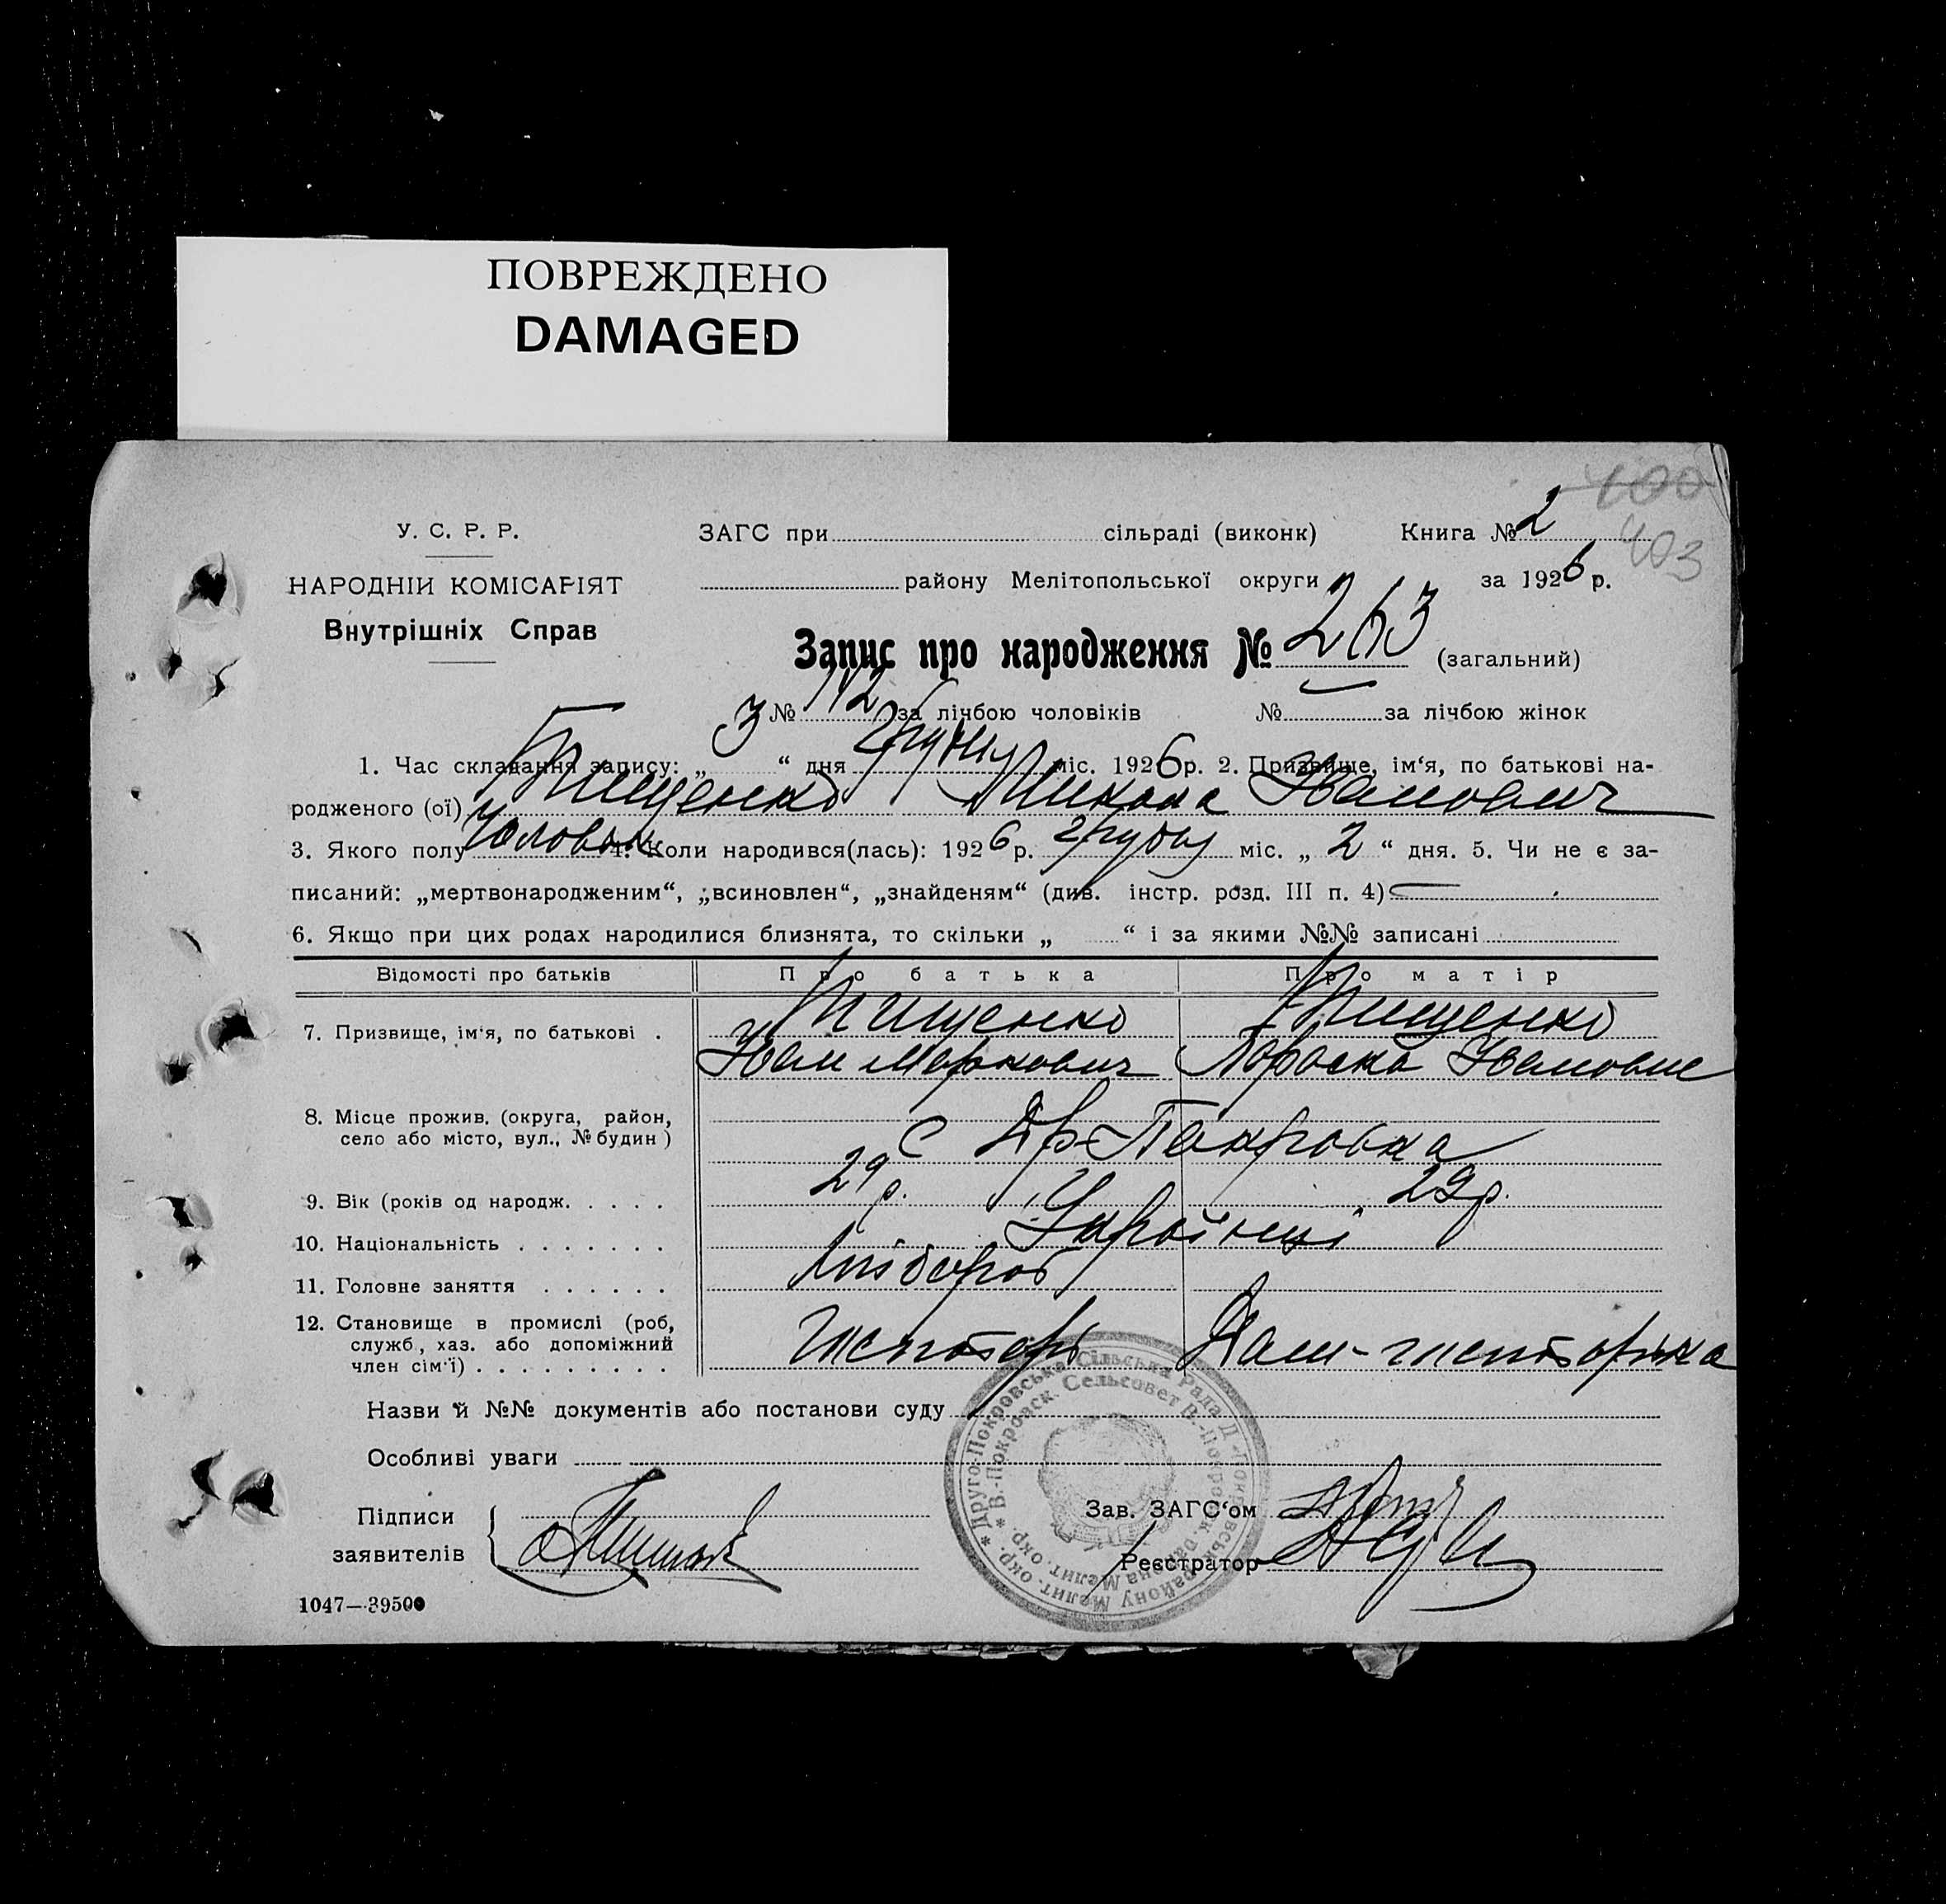 ПОВРЕЖДЕНО
DAMAGED
400
403
У. С. Р. Р.
НАРОДНІИ КОМІСАРІЯТ
Внутрішніх Справ
ЗАГС при сільраді (виконк) Книга № 2
району Мелітопольської округи за 1926 р.
Запис про народження № 263 (загальний)
№ 142 за лічбою чоловіків № за лічбою жінок
1. Час складання запису: „ 3 “ дня грудня міс. 1926 р. 2. Призвище, ім‘я, по батькові на-
родженого (ої) Тищенко Микола Іванович
3. Якого полу 4. Коли народився(лась): 1926 р. грудня міс. „ 2 “ дня. 5. Чи не є за-
писаний: „мертвонародженим“, „всиновлен“, „знайденям“ (див. інстр. розд. III п. 4)
6. Якщо при цих родах народилися близнята, то скільки „ “ і за якими №№ записані
Відомості про батьків Про батька Про матір
7. Призвище, ім‘я, по батькові . Тищенко Тищенко
Иван Маркович Параска Ивановне
8. Місце прожив. (округа, район,
село або місто, вул., № будин ) с Др-Покровка
9. Вік (років од народж. . . . . 29 р. 29 р.
10. Національність . . . . . . . Українці
11. Головне заняття . . . . . . хлібороб
12. Становище в промислі (роб,
служб, хаз. або допоміжний
член сім‘ї) . . . . . . . . .
Назви й №№ документів або постанови суду
Особливі уваги
Підписи
заявителів
Зав. ЗАГС‘ом
Реєстратор
1047—39500
* Друго-Покровська Сільська Рада Д.-Покровськ. району Мелит. окр.
* В.-Покровск. Сельсовет В.-Покровск. района Мелит. окр.